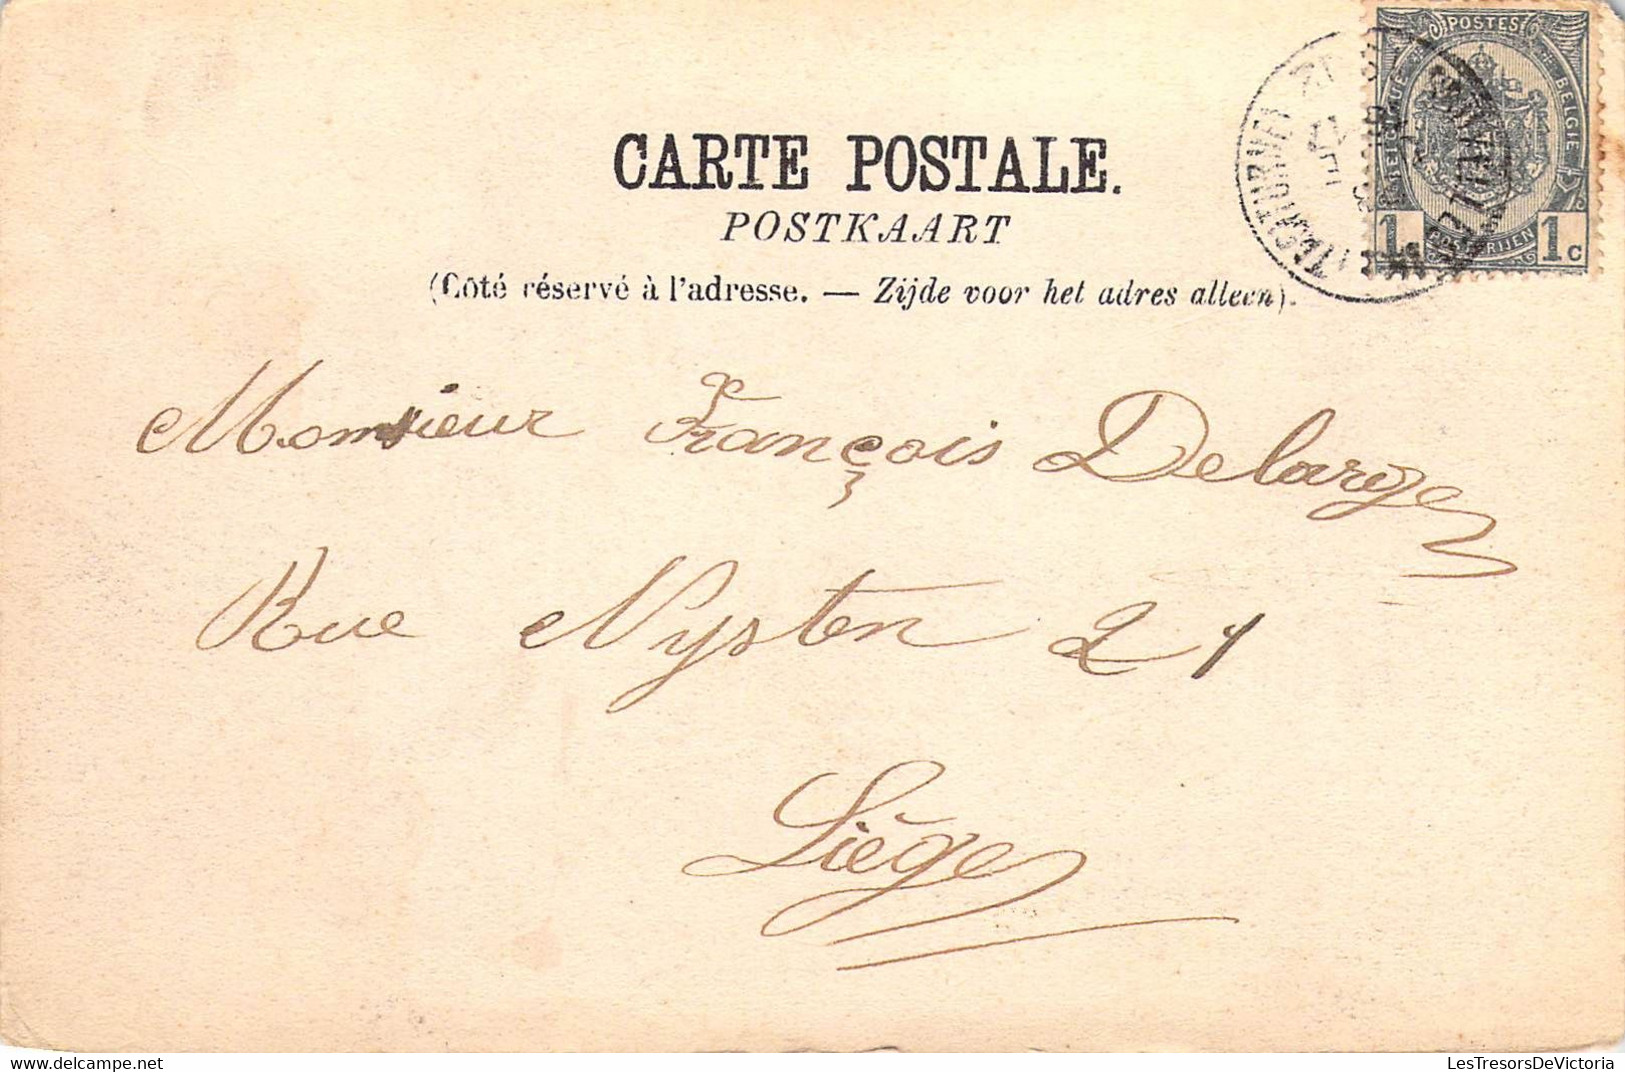 POSTES
BELGIQUE
BELGIE
POSTERIJEN
1 1c
CARTE POSTALE.
POSTKAART
(Côté réservé à l'adresse. — Zijde voor het adres alleen).
Monsieur François Delarge
Rue Nysten 21
Liége
delcampe.net
LesTresorsDeVictoria